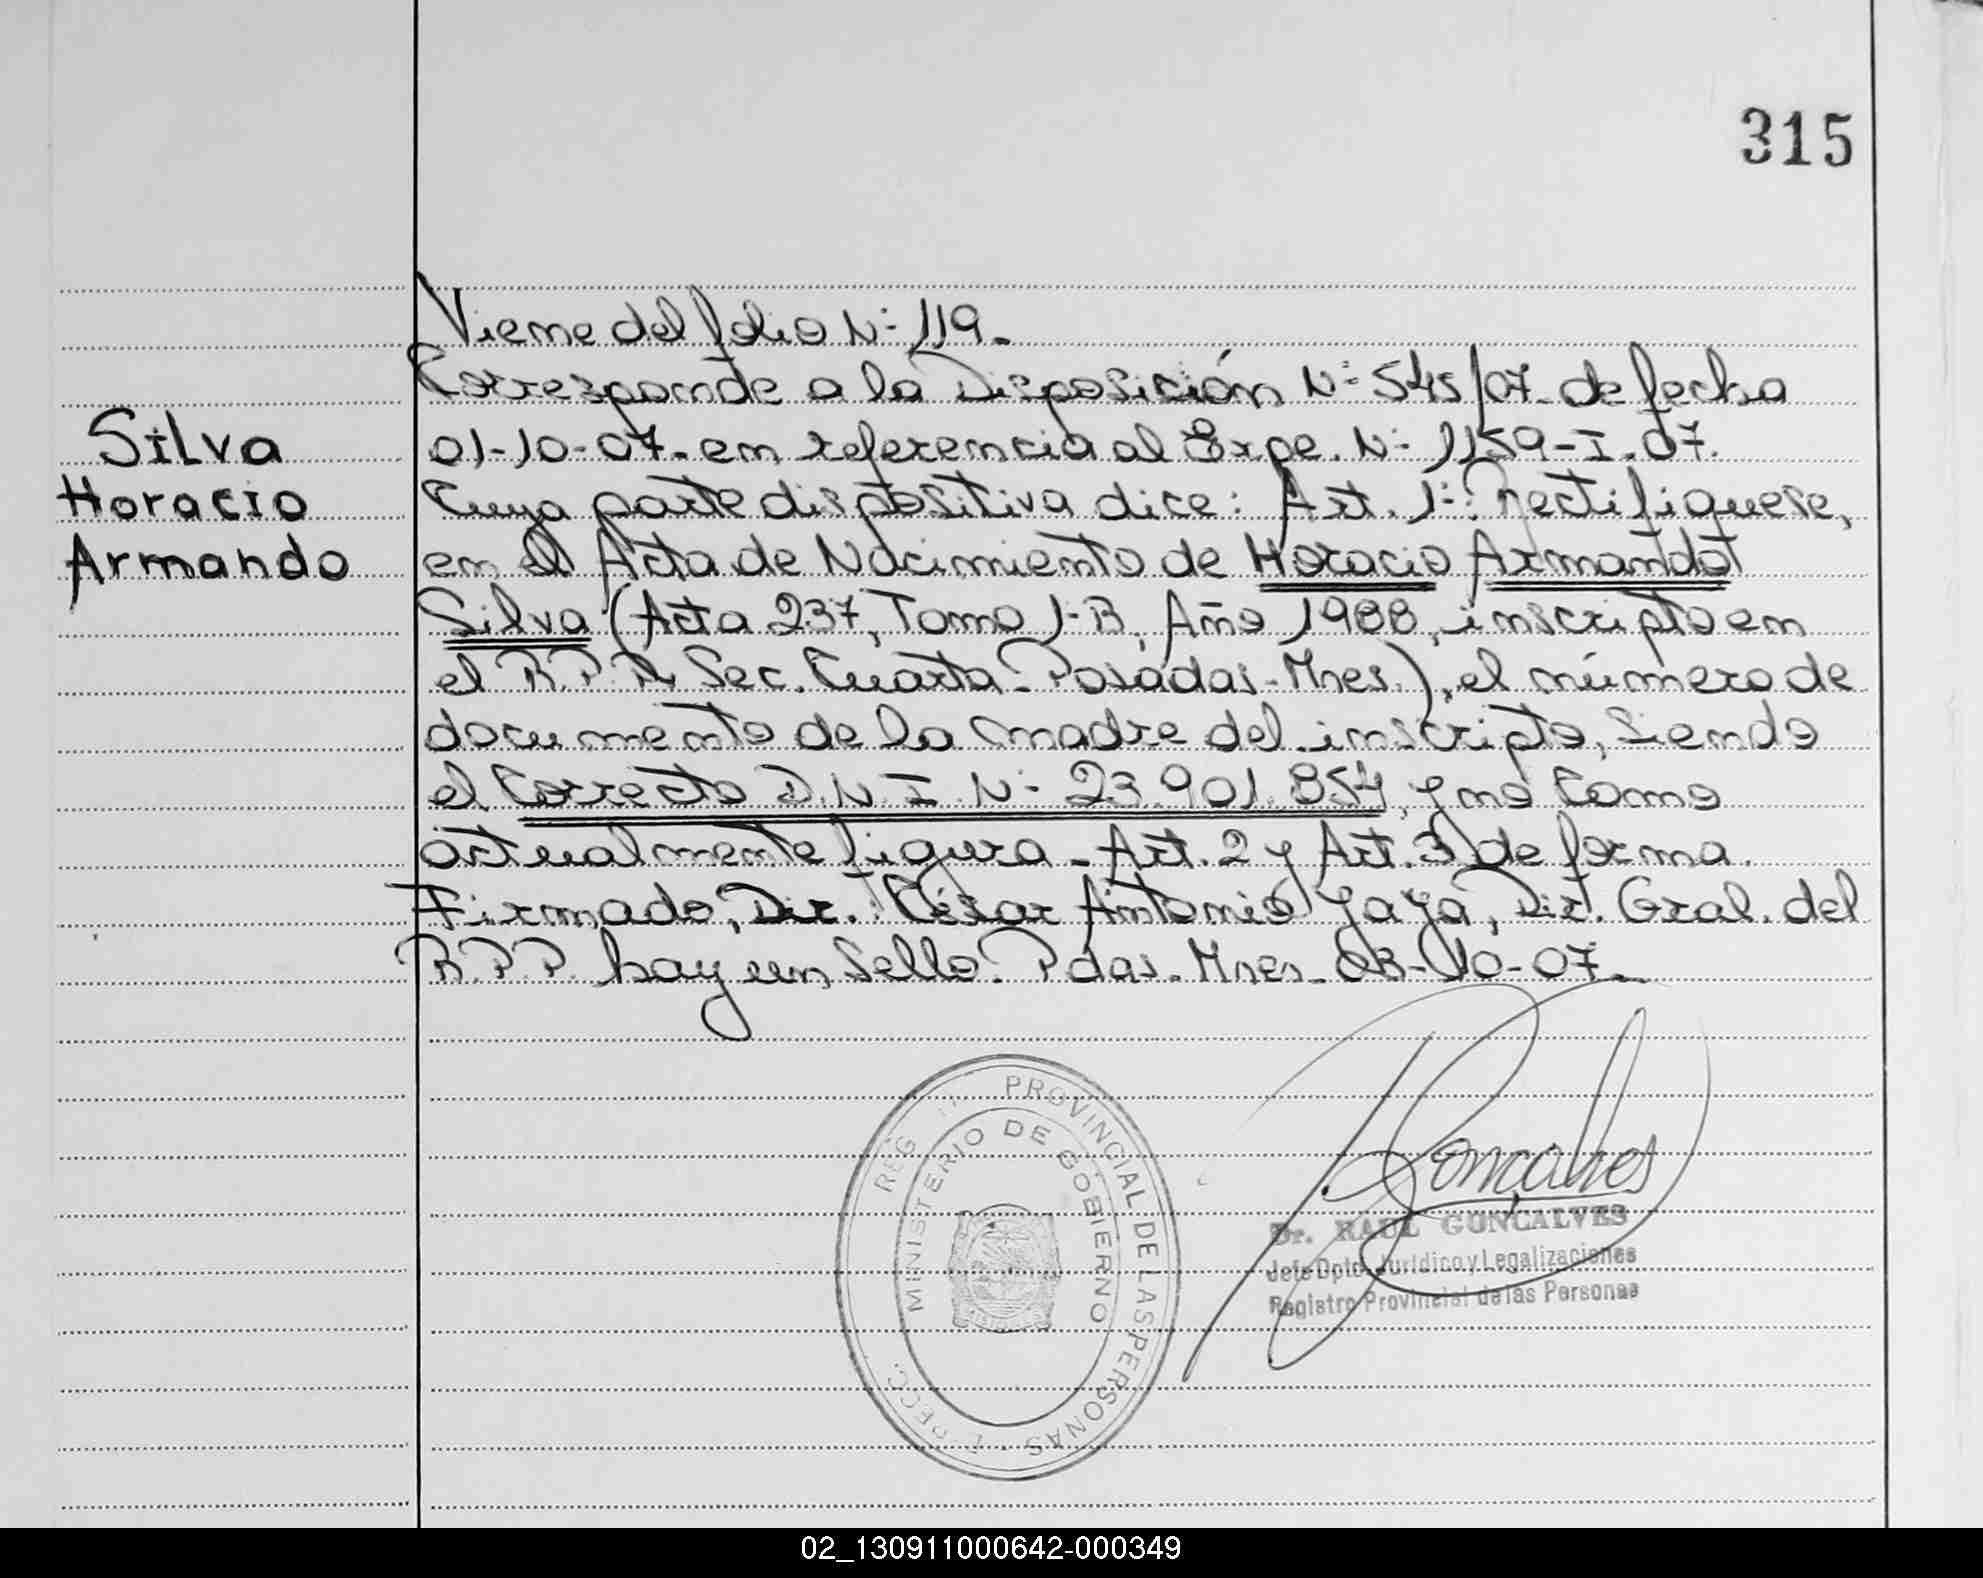 315
Viene del folio N° 119.
Corresponde a la Disposición N° 545/07. de fecha
Silva
01-10-07. en referencia al Expe. N° 1159-I-07.
Horacio
Cuya parte dispositiva dice: Art. 1°: Rectifiquese,
Armando
en el Acta de Nacimiento de Horacio Armando
Silva (Acta 237, Tomo I-B, Año 1988, inscripto en
el R.P.P. Sec. Cuarta - Posadas - Mnes.), el número de
documento de la madre del inscripto, siendo
el Correcto D.N.I. N° 23.901.854, y no como
actualmente figura - Art. 2 y Art. 3 de forma.
Firmado, Dir. César Antonio Yaya, Dir. Gral. del
R.P.P. hay un sello. Pdas. Mnes. 03-10-07.
PROVINCIAL DE LAS PERSONAS
MINISTERIO DE GOBIERNO
Gonçalves
Dr. RAUL GONÇALVES
Jefe Dpto. Jurídico y Legalizaciones
Registro Provincial de las Personas
02_130911000642-000349